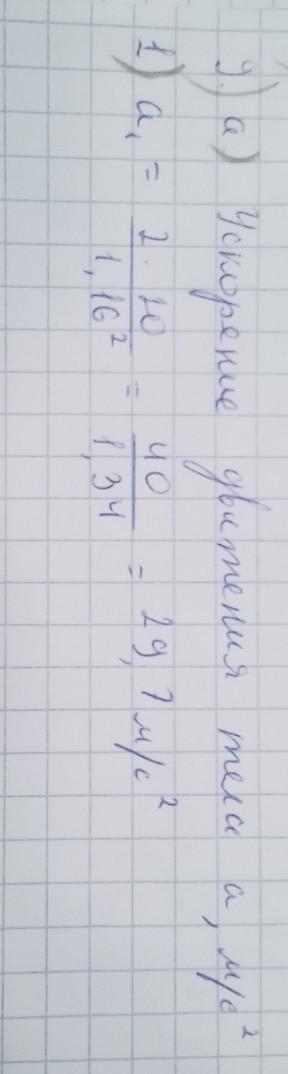 9.) а) Ускорение движения тела а, м/с²
1) а₁ = \frac{2 · 20}{1,16²} = \frac{40}{1,34} = 29,7 м/с²